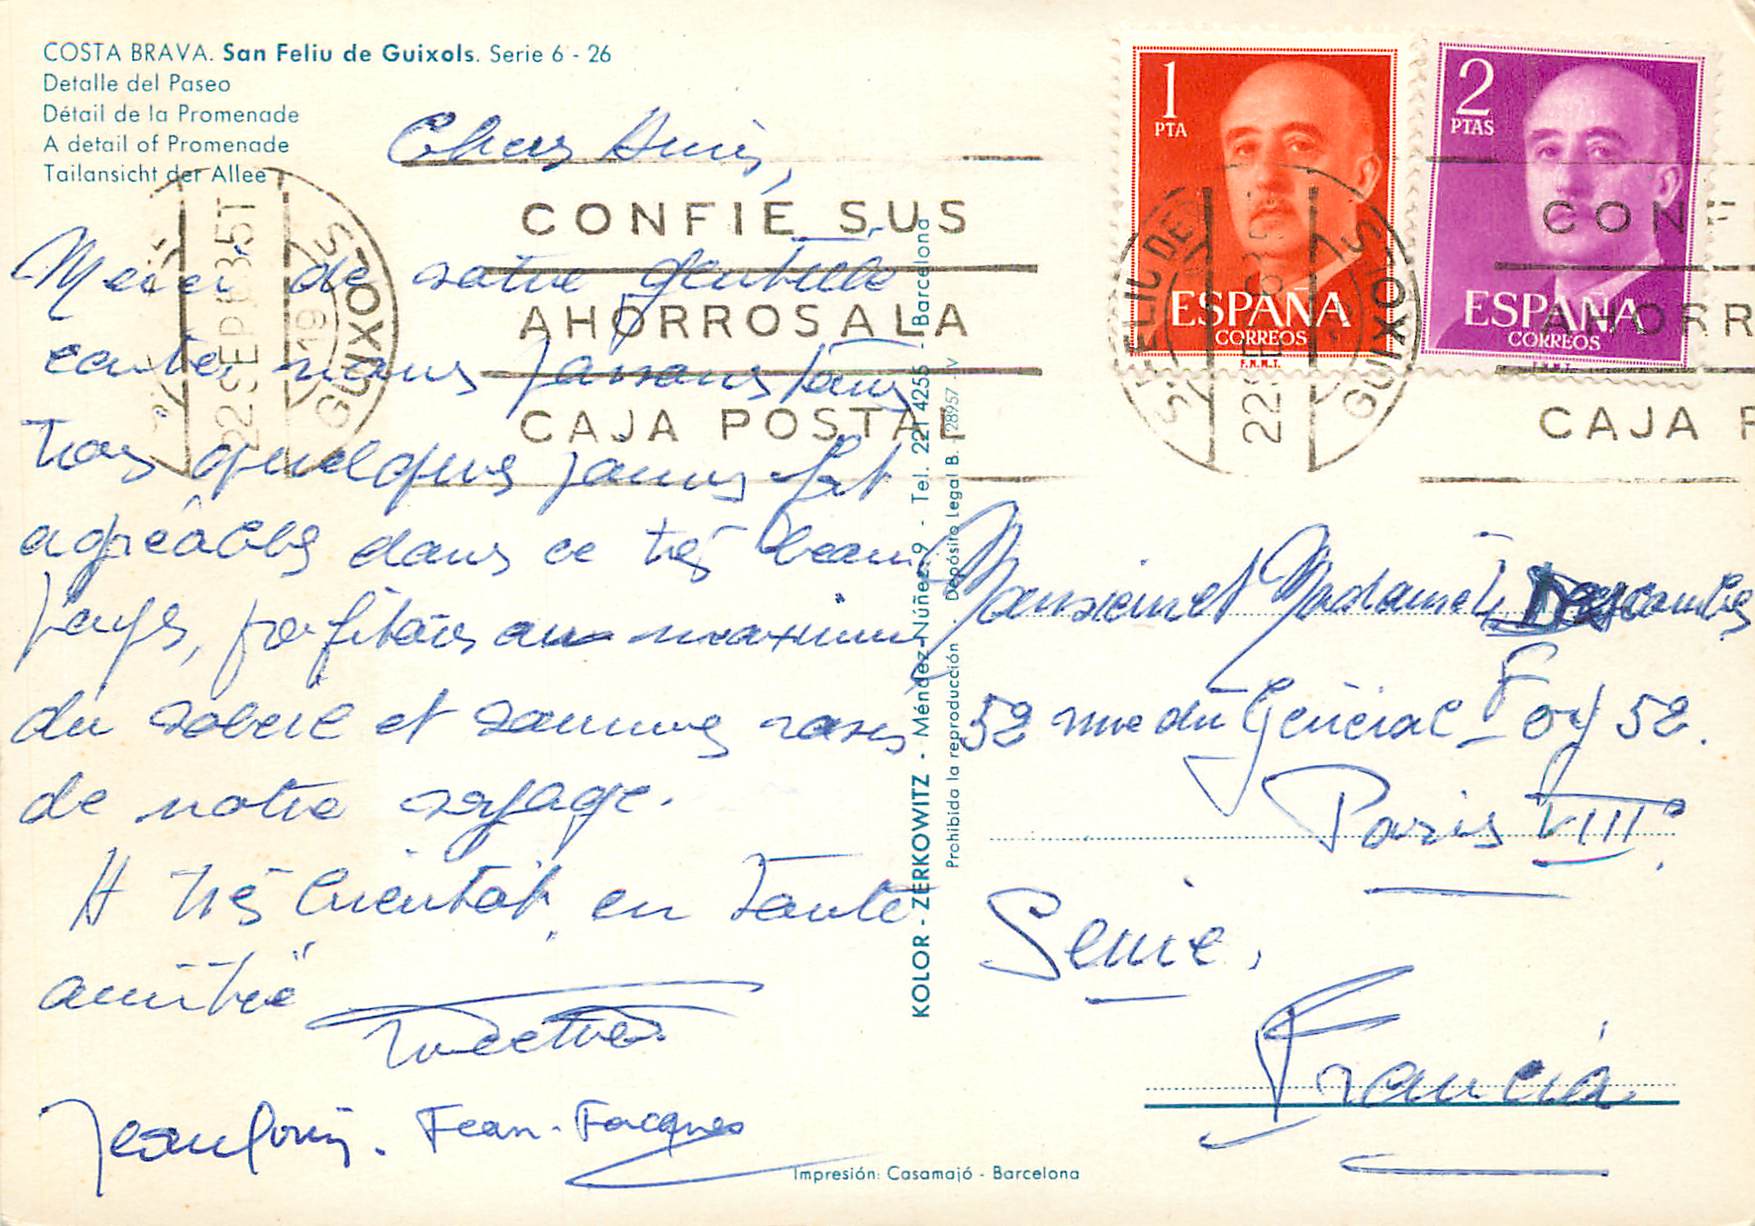 COSTA BRAVA. San Feliu de Guixols. Serie 6 - 26
Detalle del Paseo
Détail de la Promenade
A detail of Promenade
Tailansicht der Allee
Chers Amis,
Merci de votre gentille
carte, nous passons tous
trois quelques jours fort
agréables dans ce très beau
pays, profitons au maximum
du soleil et sommes ravis
de notre voyage.
A très bientôt, en toute
amitié
Jean Louis. Jean-Jacques
KOLOR - ZERKOWITZ - Méndez Núñez, 9 - Tel. 221 4255 - Barcelona
Prohibida la reproducción Depósito Legal B. - 28957 - IV
1
PTA
ESPAÑA
CORREOS
F.N.M.T.
2
PTAS
ESPAÑA
CORREOS
F.N.M.T.
CONFIE SUS
AHORROS A LA
CAJA POSTAL
22 SEP 63 5T
GUIXOLS
S. FELIU DE
GUIXOLS
22 SE
CONFI
AHORR
CAJA P
Monsieur et Madame Descombes
52 rue du Général Foy 52.
Paris VIII°.
Seine,
Francia
Impresión: Casamajó - Barcelona